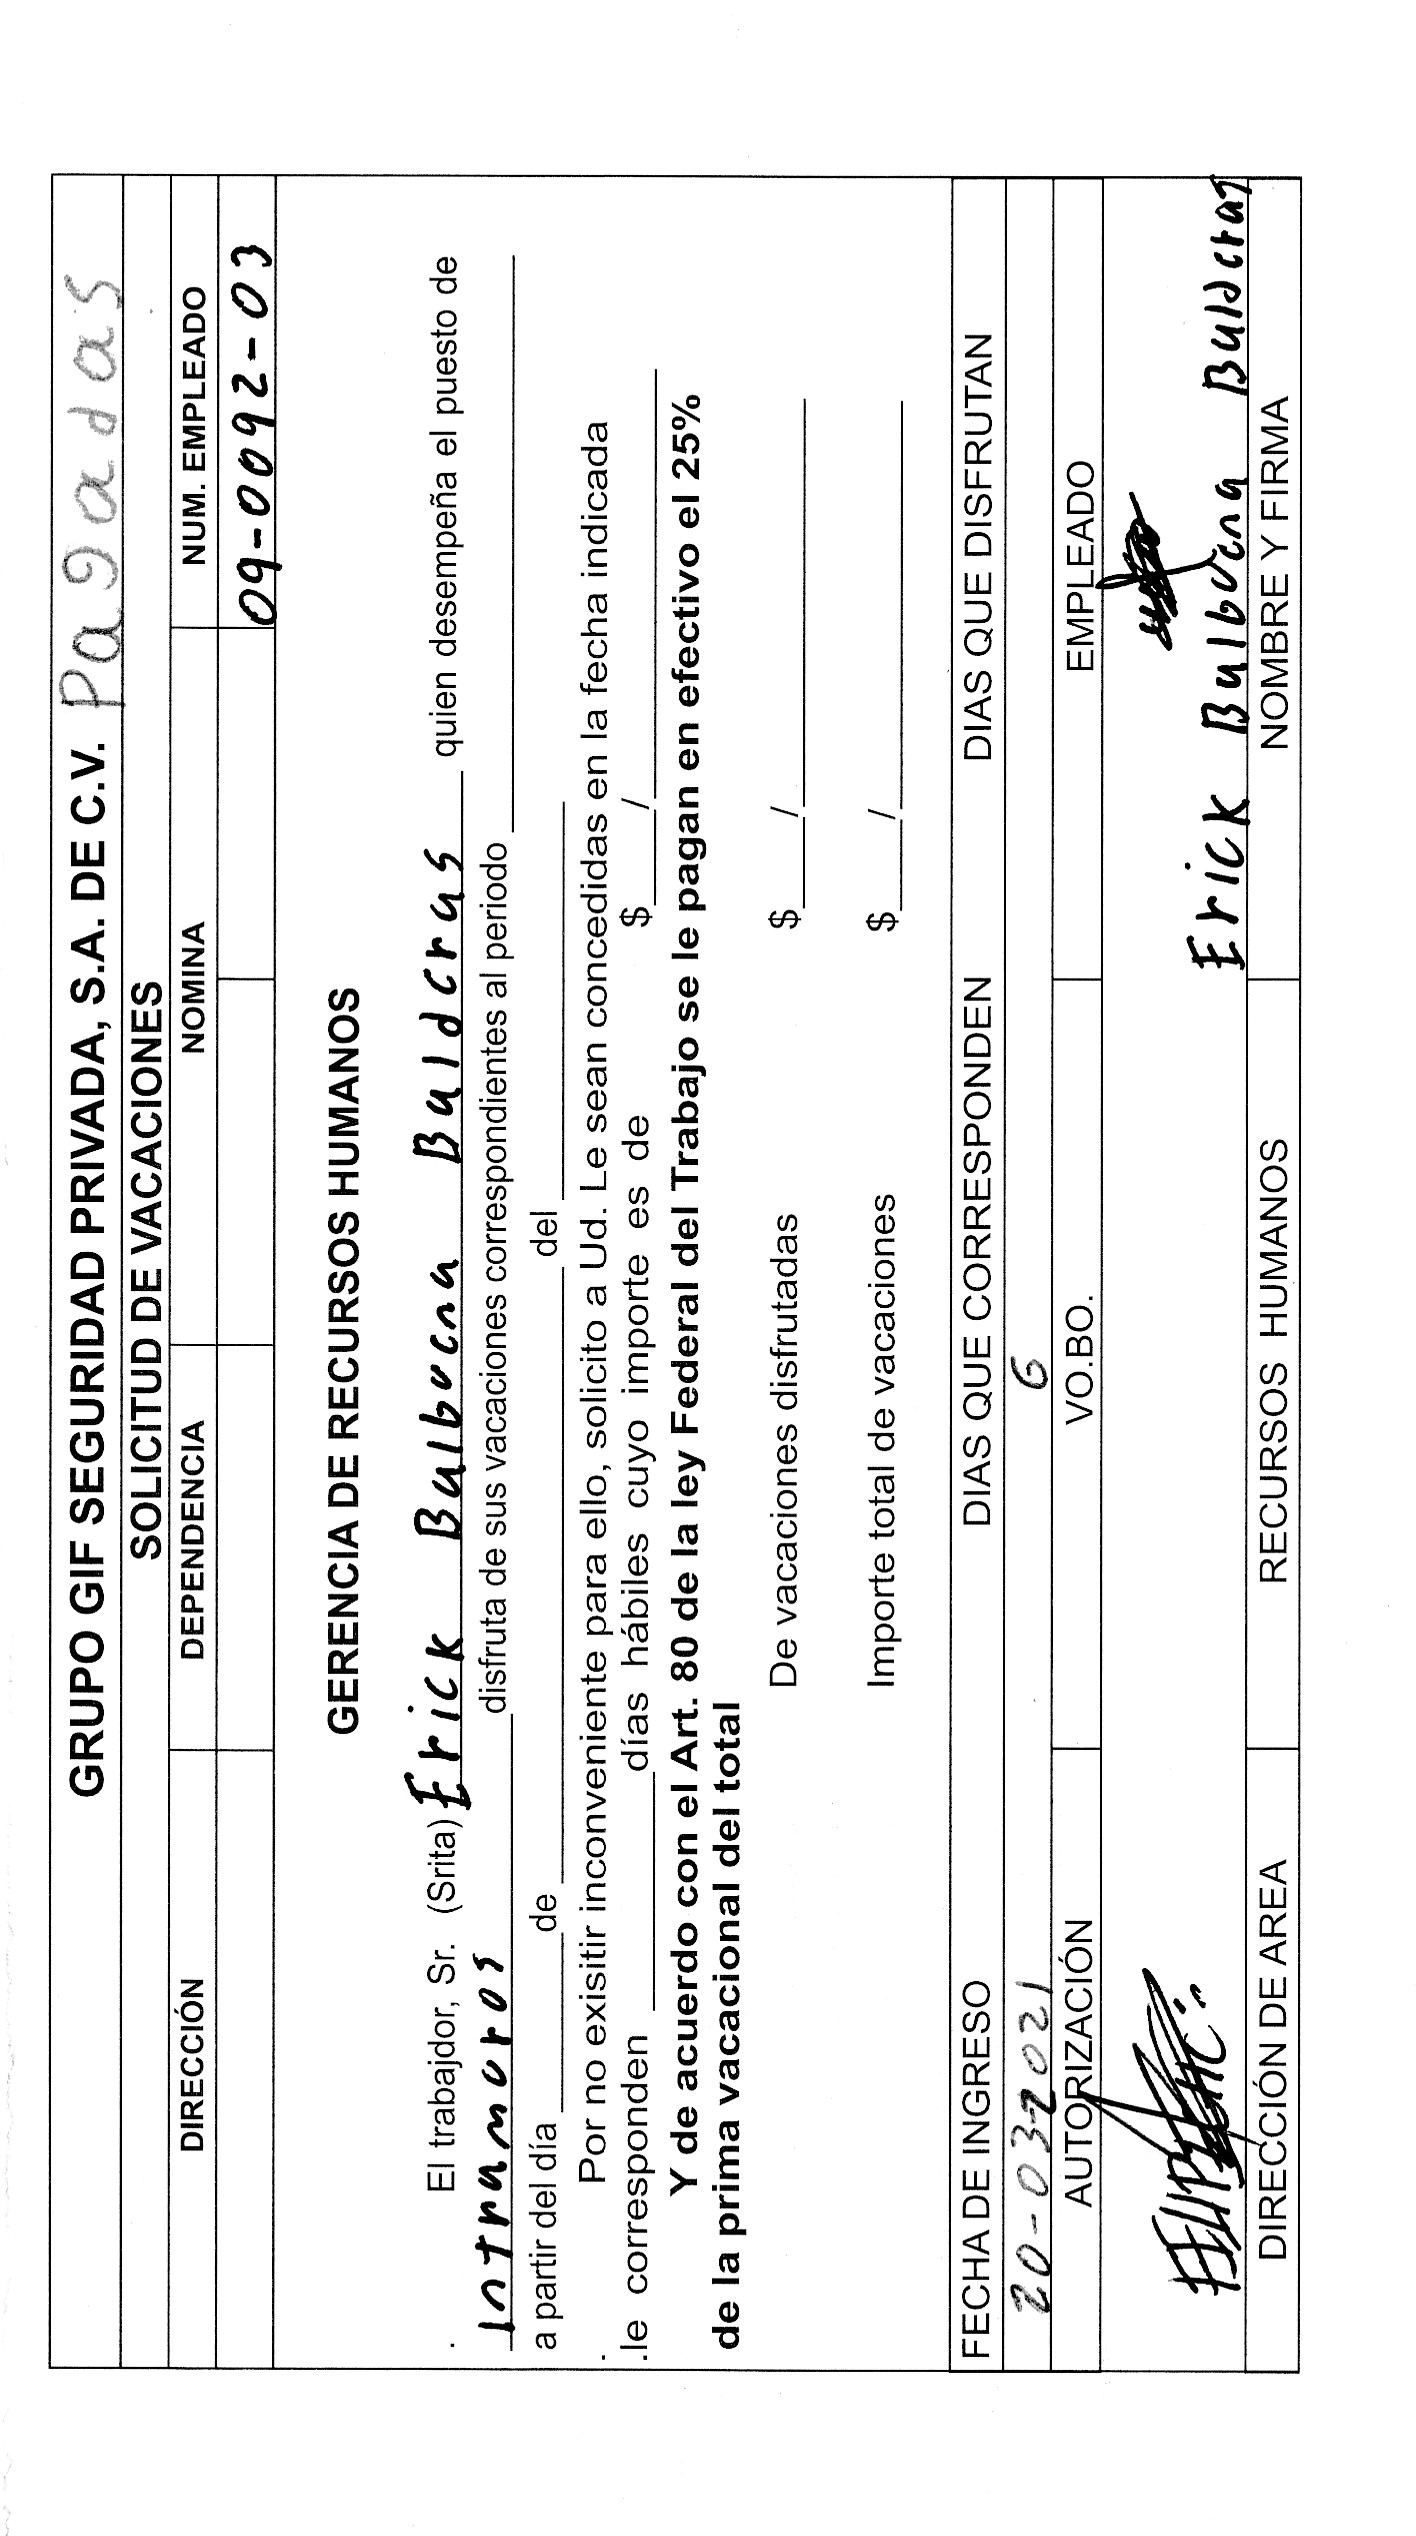 GRUPO GIF SEGURIDAD PRIVADA, S.A. DE C.V. Pagadas
SOLICITUD DE VACACIONES
DIRECCIÓN DEPENDENCIA NOMINA NUM. EMPLEADO
09-0092-03
GERENCIA DE RECURSOS HUMANOS
El trabajador, Sr. (Srita) Erick Balbuena Balderas quien desempeña el puesto de
Intramuros disfruta de sus vacaciones correspondientes al periodo
a partir del día ______ de ______ del ______
Por no exisitir inconveniente para ello, solicito a Ud. Le sean concedidas en la fecha indicada
.le corresponden ______ días hábiles cuyo importe es de $ ___/______
Y de acuerdo con el Art. 80 de la ley Federal del Trabajo se le pagan en efectivo el 25%
de la prima vacacional del total
De vacaciones disfrutadas $ ___/______
Importe total de vacaciones $ ___/______
FECHA DE INGRESO DIAS QUE CORRESPONDEN DIAS QUE DISFRUTAN
20-03-2021 6
AUTORIZACIÓN VO.BO. EMPLEADO
Erick Balbuena Balderas
DIRECCIÓN DE AREA RECURSOS HUMANOS NOMBRE Y FIRMA